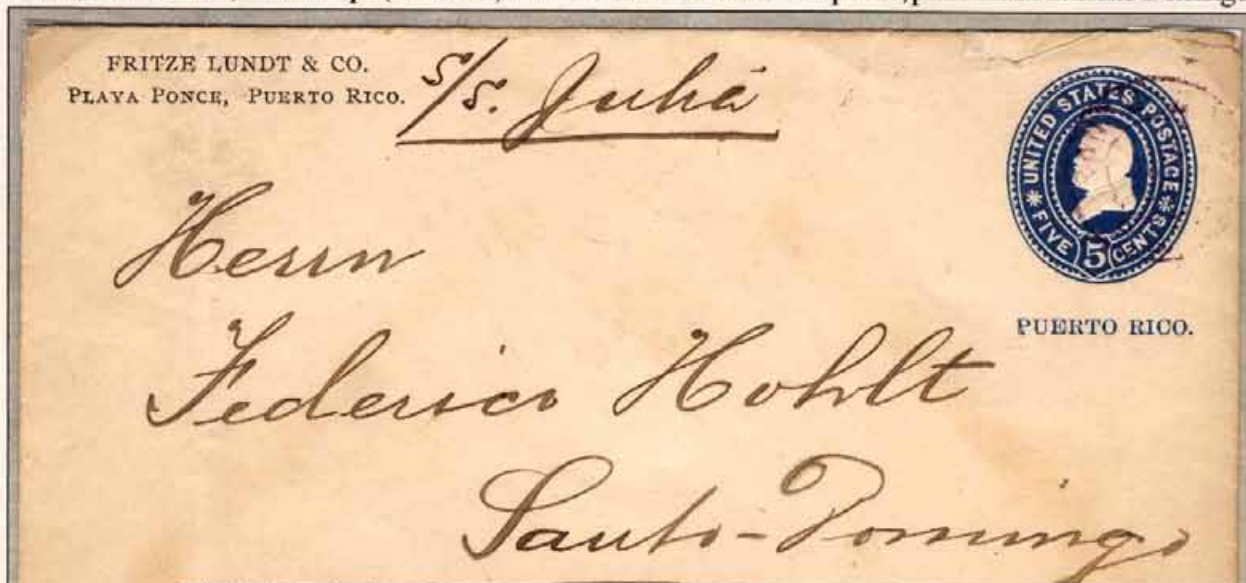 FRITZE LUNDT & CO.
PLAYA PONCE, PUERTO RICO.
S/S. Julia
UNITED STATES POSTAGE
FIVE 5 CENTS
PUERTO RICO.
Herrn
Federico Hohlt
Santo-Domingo